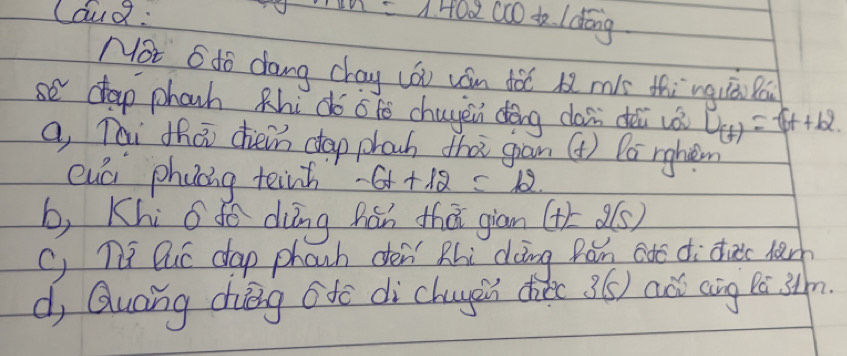 Câu 2:
= 1.402 000 đ/đồng
Một ô tô đang chạy với vận tốc 12 m/s thì người lái
sẽ đạp phanh khi đó ô tô chuyển động dần đều với V(t) = -6t+12.
a, Tại thời điểm đạp phanh thời gian (t) là nghiệm
của phương trình -6t + 12 = 12.
b, Khi ô tô dừng hẳn thời gian (t) = 2(s)
c, Từ lúc đạp phanh đến khi dừng hẳn ôtô đi được 12m
d, Quãng đường ô tô di chuyển được 3(s) cuối cùng là 31m.